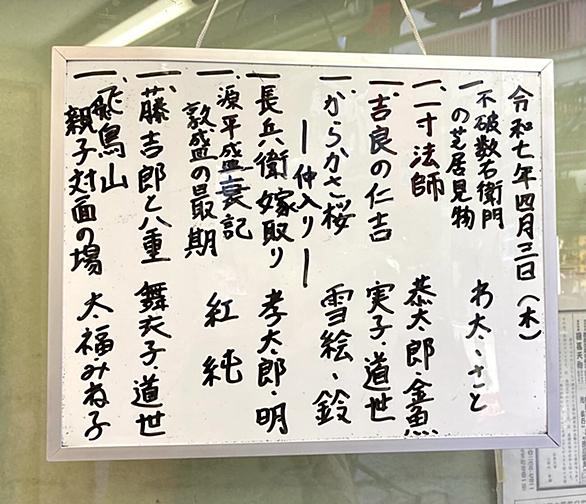 令和七年四月三日（木）
一、不破数右衛門
の芝居見物 わ太・さと
一、一寸法師 恭太郎・金魚
一、吉良の仁吉 実子・道世
一、からかさ桜 雪絵・鈴
ー仲入りー
一、長兵衛嫁取り 孝太郎・明
一、源平盛衰記
敦盛の最期 紅純
一、藤吉郎と八重 舞衣子・道世
一、飛鳥山
親子対面の場 大福みね子